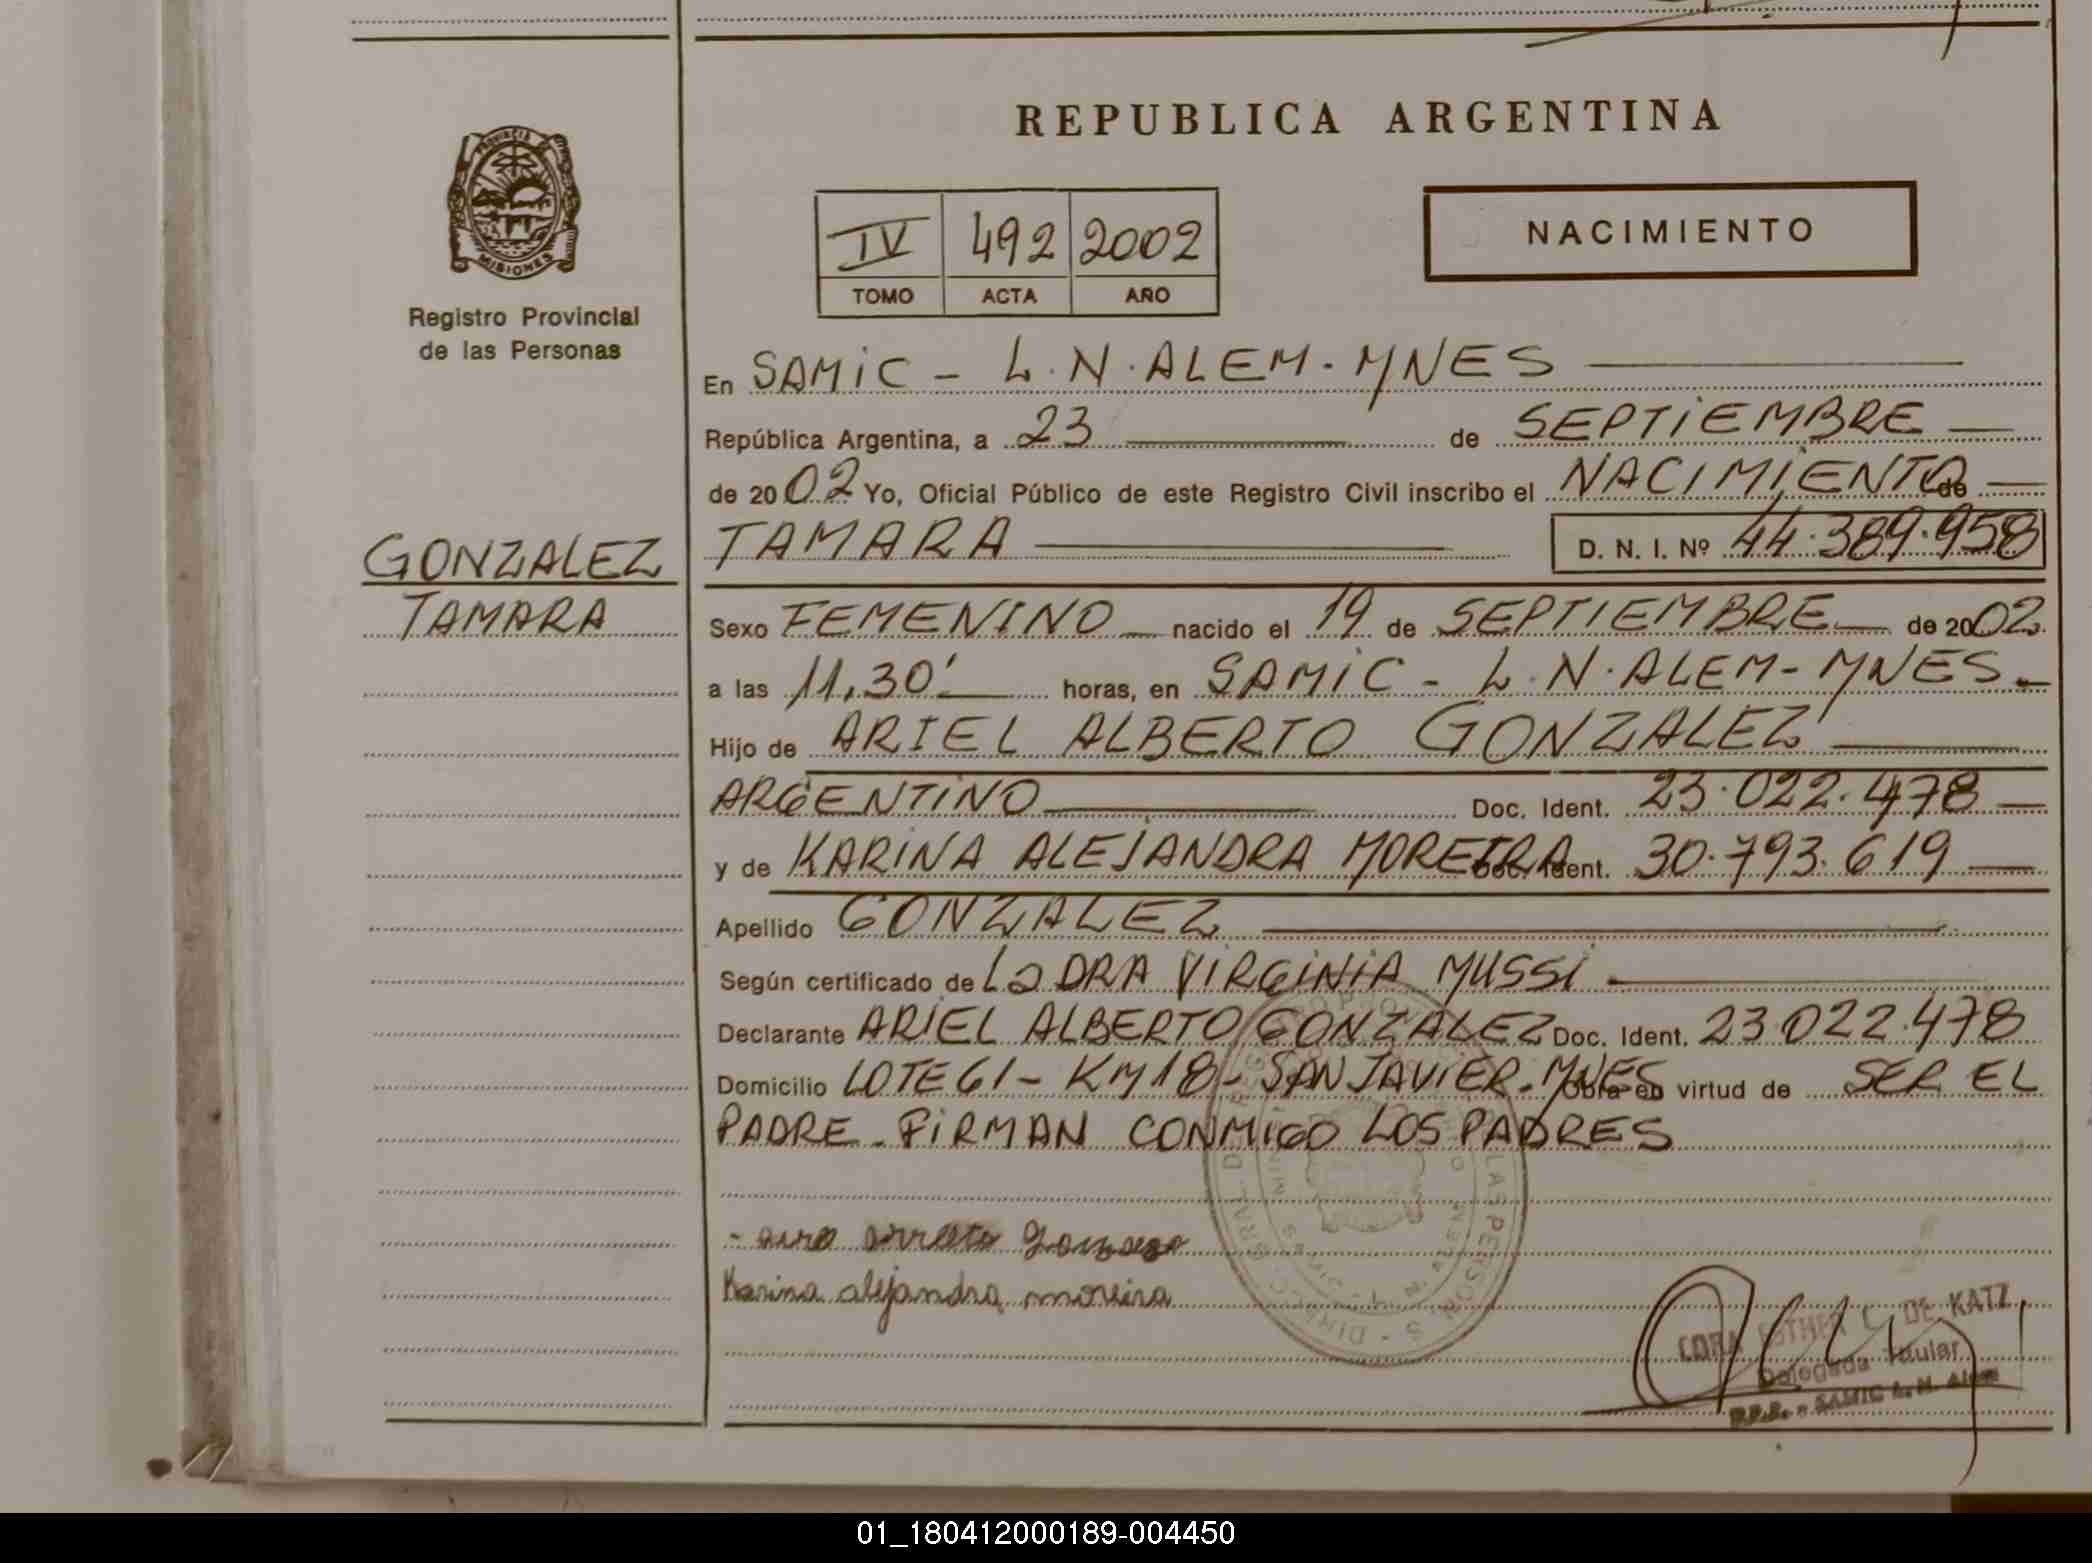 REPUBLICA ARGENTINA
PROVINCIA DE MISIONES
Registro Provincial
de las Personas
IV 492 2002
TOMO ACTA AÑO
NACIMIENTO
En SAMIC - L.N.ALEM-MNES
República Argentina, a 23 de SEPTIEMBRE
de 2002 Yo, Oficial Público de este Registro Civil inscribo el NACIMIENTO de
GONZALEZ
TAMARA
TAMARA D. N. I. Nº 44.389.958
Sexo FEMENINO nacido el 19 de SEPTIEMBRE de 2002
a las 11,30' horas, en SAMIC - L.N.ALEM-MNES-
Hijo de ARIEL ALBERTO GONZALEZ
ARGENTINO Doc. Ident. 23.022.478
y de KARINA ALEJANDRA MOREIRA Doc. Ident. 30.793.619
Apellido GONZALEZ
Según certificado de La DRA VIRGINIA MUSSI
Declarante ARIEL ALBERTO GONZALEZ Doc. Ident. 23.022.478
Domicilio LOTE 61 - KM 18 - SAN JAVIER-MNES Obra en virtud de SER EL
PADRE - FIRMAN CONMIGO LOS PADRES
Karina alejandra moreira
CORA ESTHER L. DE KATZ
Delegada Titular
R.P.P. - SAMIC L. N. Alem
01_180412000189-004450